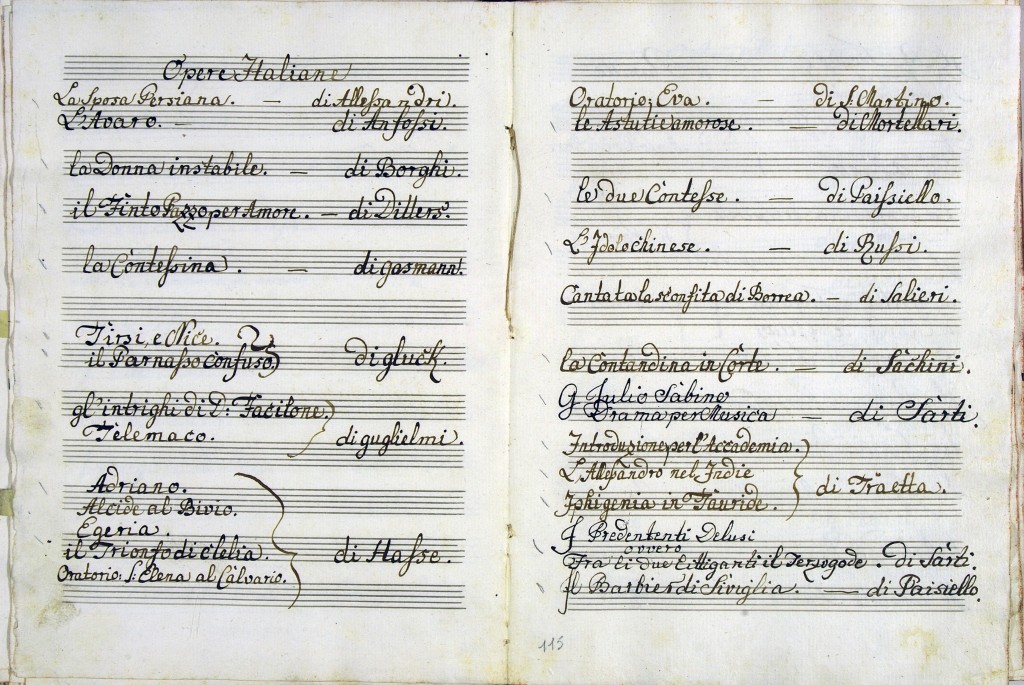 Opere Italiane
La Sposa Persiana. — di Allessandri.
L'Avaro. — di Anfossi.
la Donna instabile. — di Borghi.
il Finto Pazzo per Amore. — di Ditters:
la Contessina. — di gasmann.
Tirsi, e Nice. 2
il Parnasso confuso) di gluck.
gl'intrighi di D: Facilone.
Telemaco. di guglielmi.
Adriano.
Alcide al Bivio.
Egeria.
il Trionfo di Clelia. di Hasse.
Oratorio: S: Elena al Calvario.
Oratorio: Eva. — di S: Martino.
le Astutie amorose. — di Mortellari.
le due Contesse. — di Paissiello.
L'Idolo chinese. — di Russi.
Cantata la sconfita di Borrea. — di Salieri.
la Contandina in Corte. — di Sachini.
G Julio Sabino
Drama per Musica — di Sarti.
Introduzione per l'Accademia.
L'Allessandro nel Indie
Iphigenia in Tauride. di Traetta.
J Predententi Delusi
ovvero
Fra li due Littiganti il Terzo gode. di Sarti.
Il Barbier di Siviglia. — di Paisiello.
115